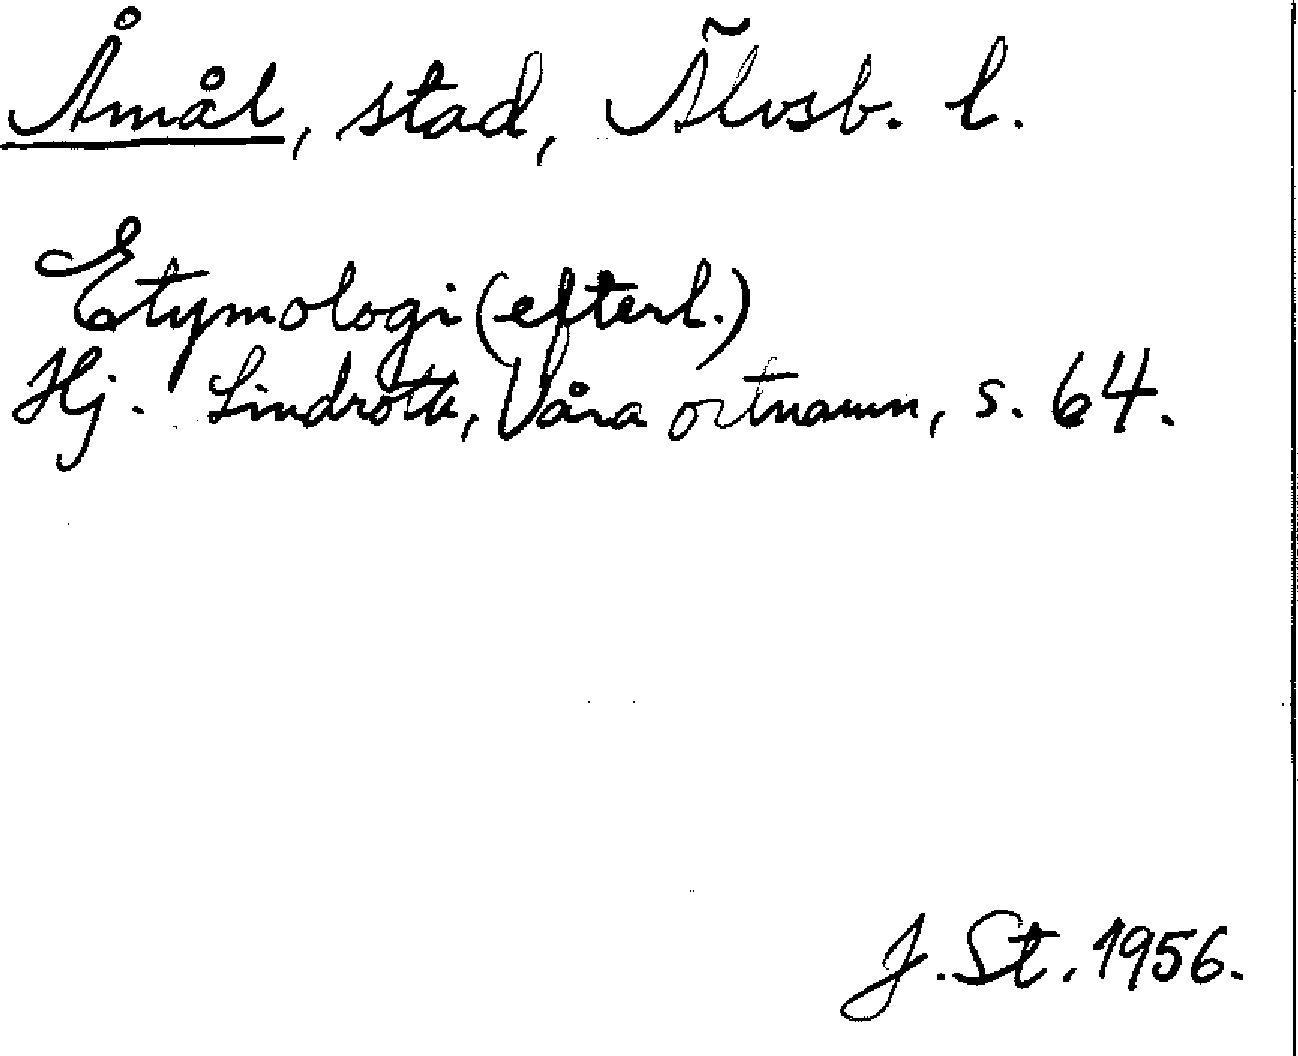 Åmål, stad, Älvsb. l.
Etymologi (efterl.)
Hj. Lindroth, Våra ortnamn, s. 64.
J. St. 1956.